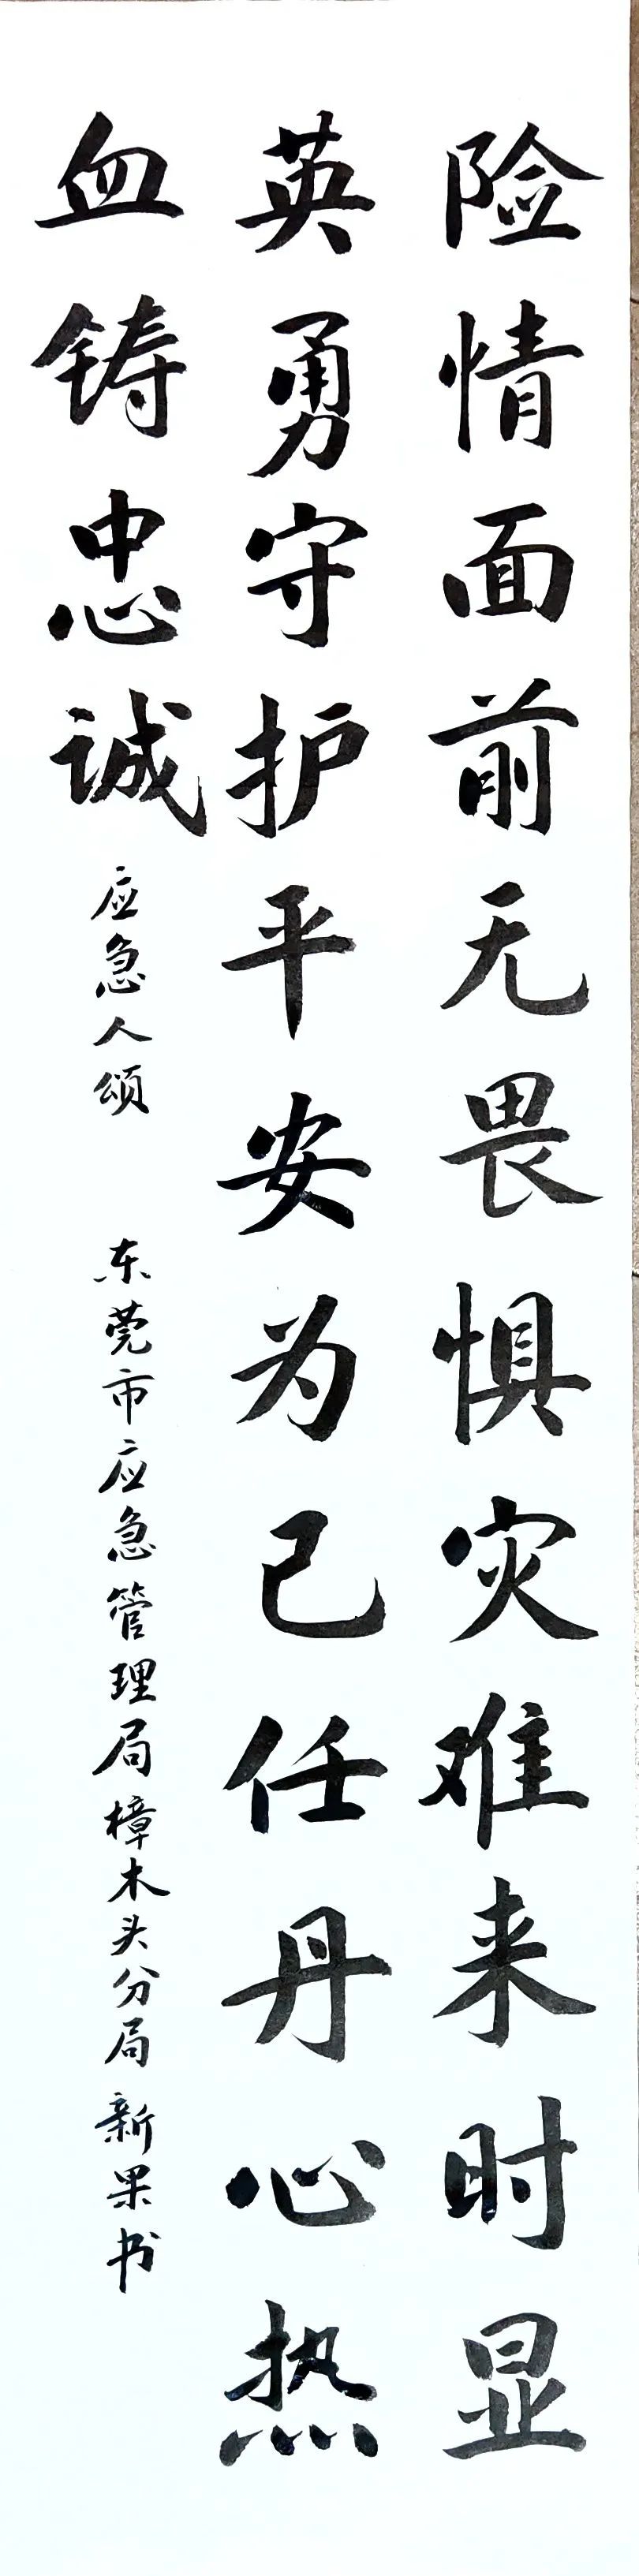 险情面前无畏惧灾难来时显
英勇守护平安为己任丹心热
血铸忠诚
应急人颂
东莞市应急管理局樟木头分局新果书